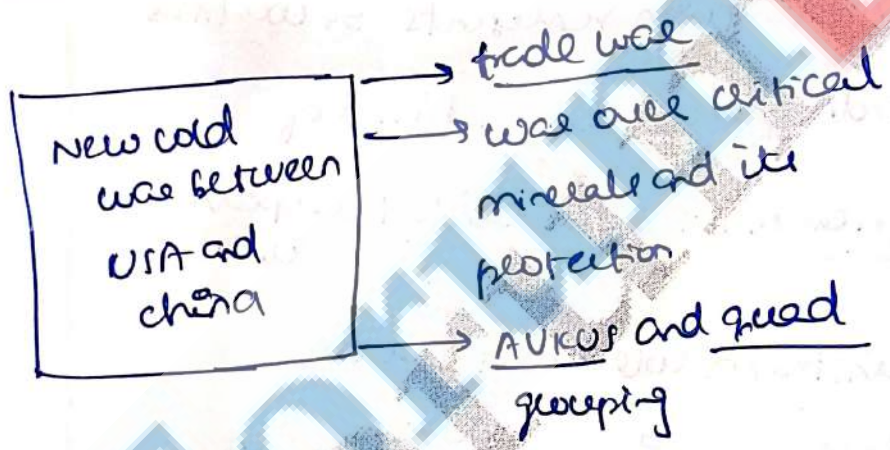 New cold
war between
USA and
china
trade war
war over critical
minerals and its
protection
AUKUS and quad
grouping